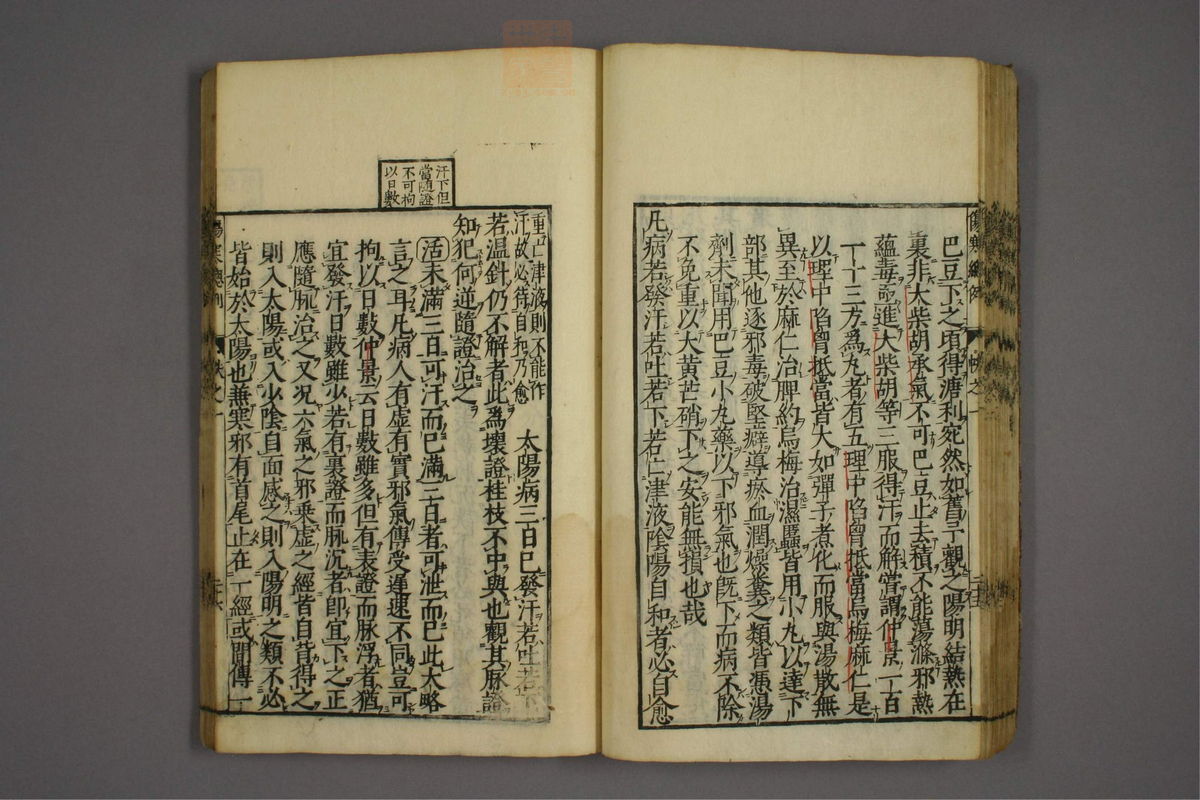 巴豆下之頃得溏利宛然如舊予觀之陽明結熱在
裏非大柴胡承氣不可巴豆止去積不能蕩滌邪熱
蘊毒亟進大柴胡等三服得汗而解嘗謂仲景一百
一十三方為丸者有五理中陷胷抵當烏梅麻仁是
以理中陷胷抵當皆大如彈子煮化而服與湯散無
異至於麻仁治脾約烏梅治濕䘌皆用小丸以達下
部其他逐邪毒破堅癖導瘀血潤燥糞之類皆憑湯
劑未聞用巴豆小丸藥以下邪氣也既下而病不除
不免重以大黃芒硝下之安能無損也哉
凡病若發汗若吐若下若亡津液陰陽自和者必自愈
重亡津液則不能作
汗故必待自和乃愈
太陽病三日巳發汗若吐若下
若温針仍不解者此為壞證桂枝不中與也觀其脉證
知犯何逆隨證治之
活未滿三日可汗而巳滿三日者可泄而巳此大略
言之耳凡病人有虚有實邪氣傳受遲速不同豈可
拘以日數仲景云日數雖多但有表證而脉浮者猶
宜發汗日數雖少若有裏證而脉沉者卽宜下之正
應隨脉治之又况六氣之邪乘虚之經皆自背得之
則入太陽或入少陰自面感之則入陽明之類不必
皆始於太陽也兼寒邪有首尾止在一經或間傳一
汗下但
當隨證
不可拘
以日數